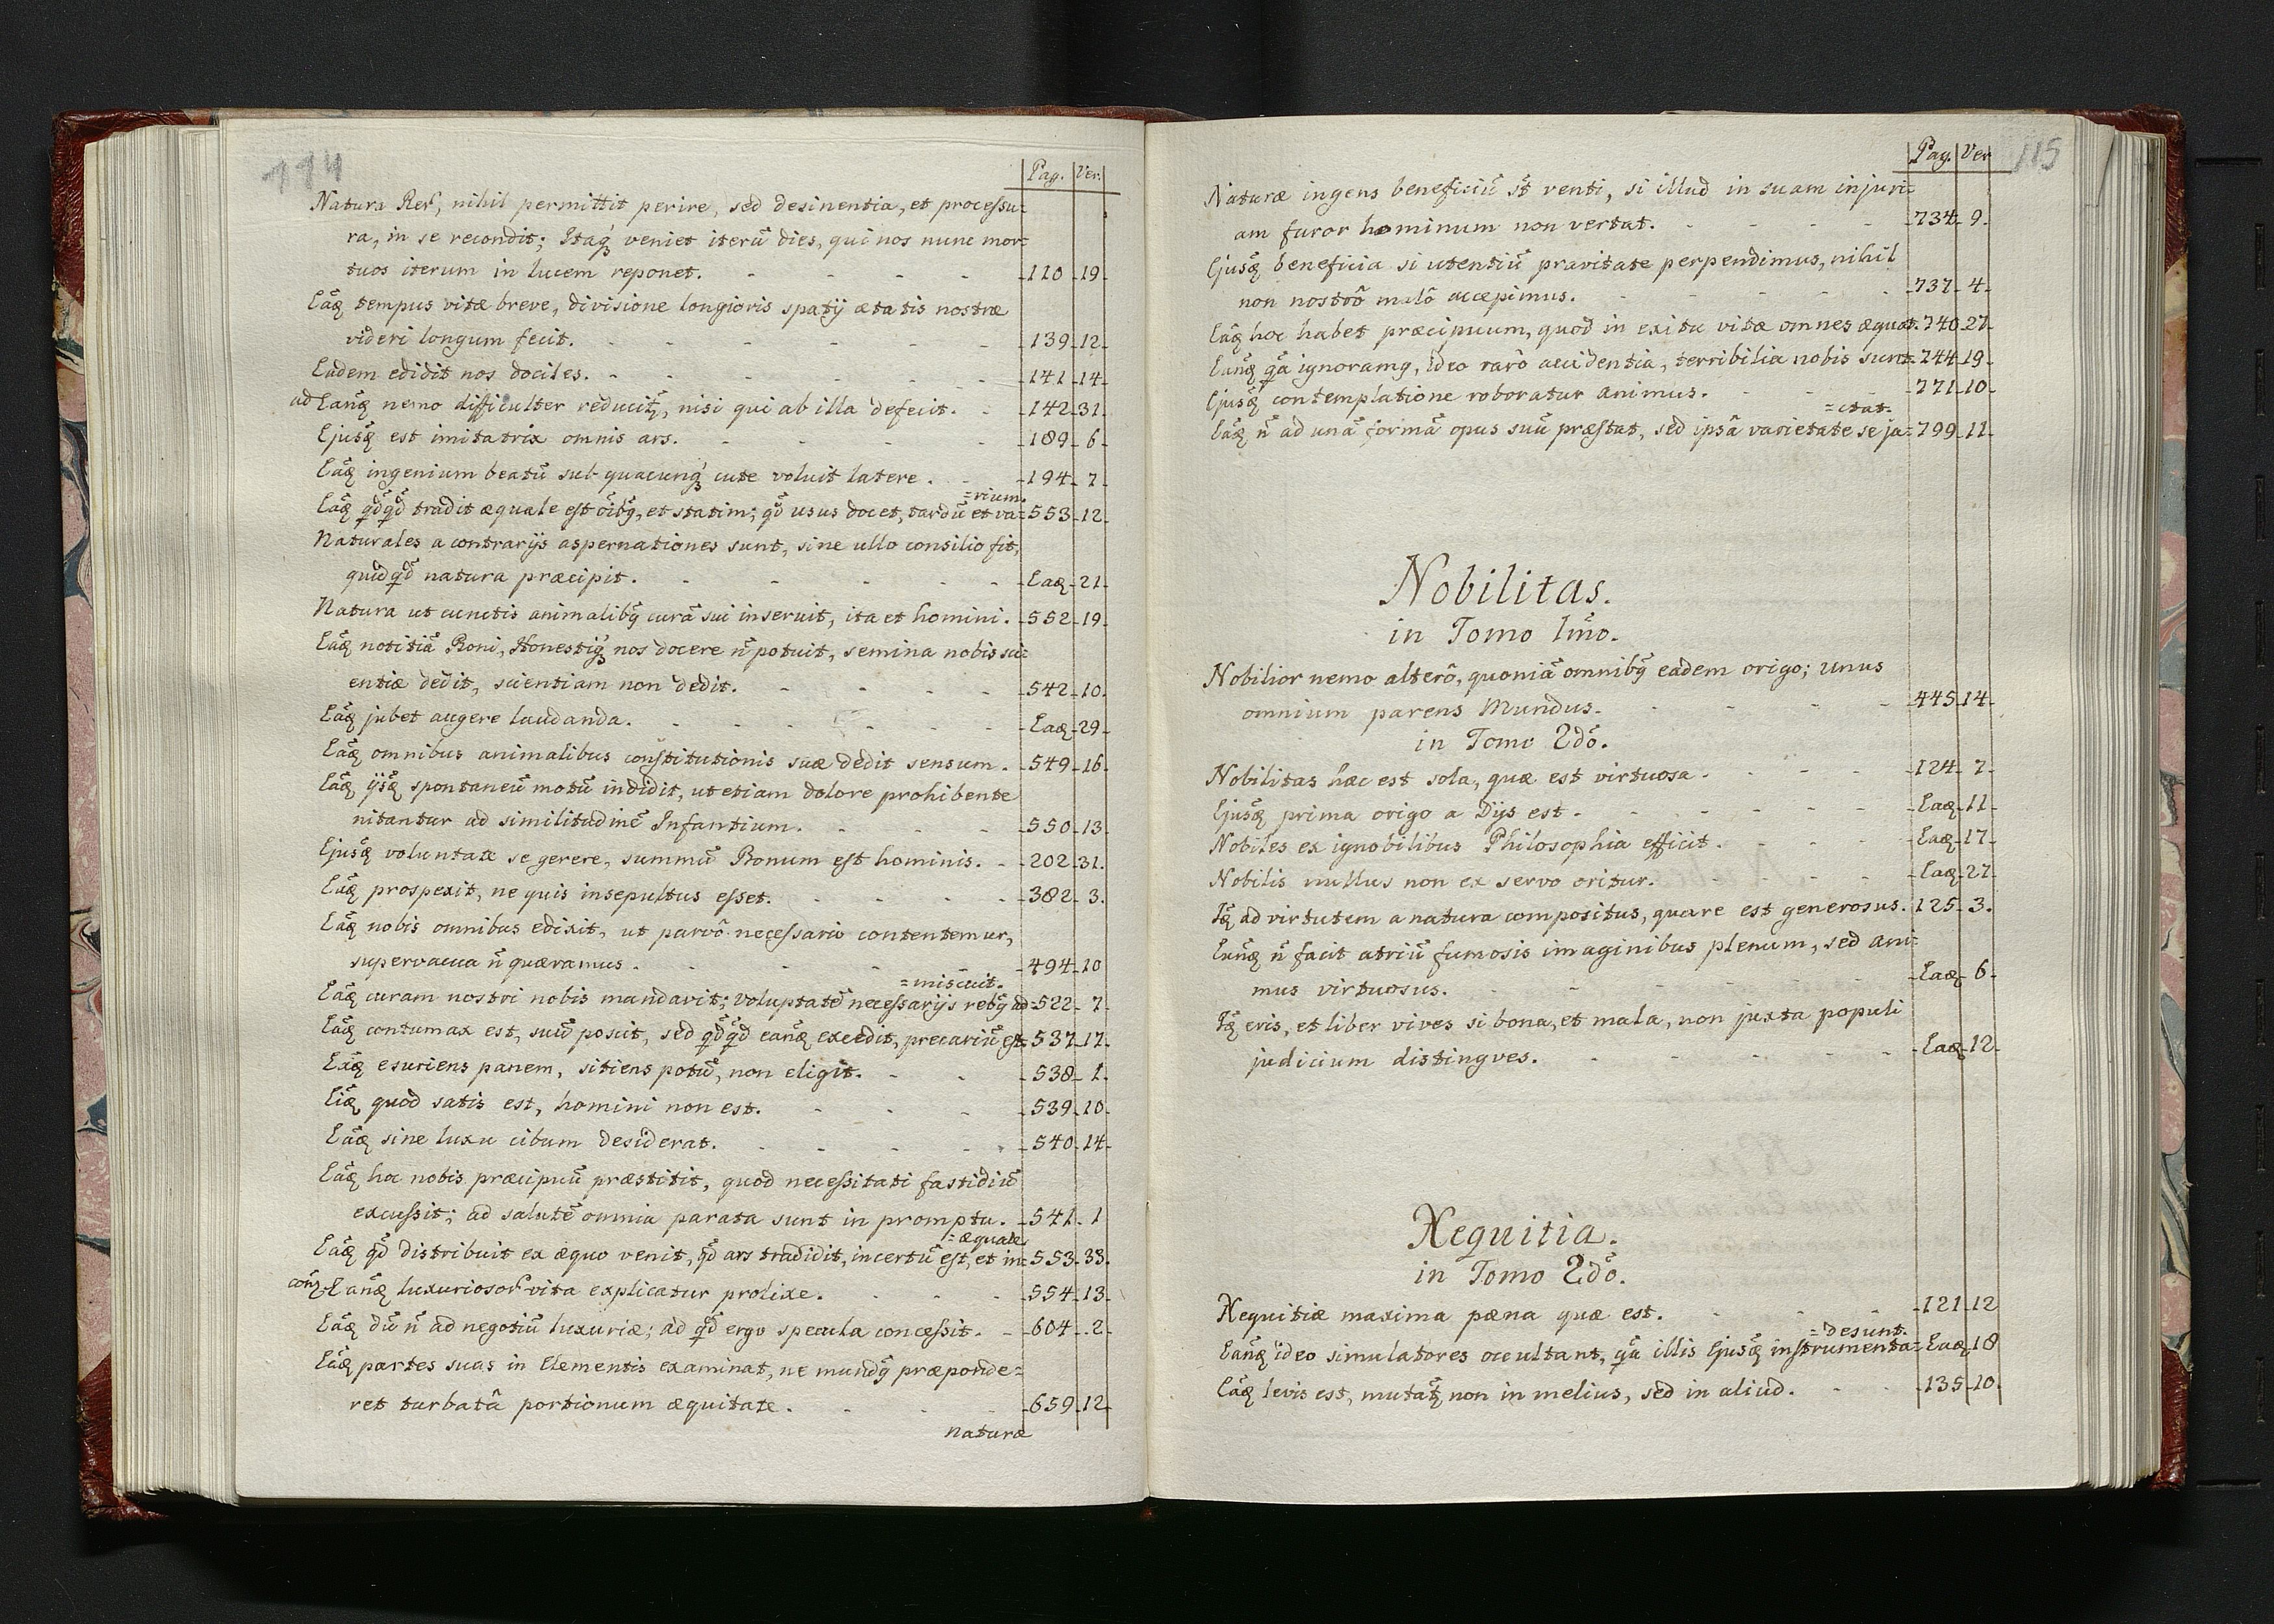 114
Pag. Ver.
Natura Reȓ, nihil permittit perire, sed desinentia, et processu=
ra, in se recondit; Itaq̄ veniet iterū dies, qui nos nunc mor=
tuos iterum in lucem reponet. - 110 - 19
Eāq tempus vitæ breve, divisione longioris spatij ætatis nostræ
videri longum fecit. - 139 - 12
Eadem edidit nos dociles. - 141 - 14
ad Eanq̄ nemo difficulter reducitȝ, nisi qui ab illa defecit. - 142 - 31
Ejusq̄ est imitatrix omnis ars. - 189 - 6
Eāq ingenium beatū sub quacunq̄ cute voluit latere. - 194 - 7
=rium.
Eāq qd̄qd̄ tradit æquale est oībȝ, et statim; qd̄ usus docet, tardū et va= 553 - 12
Naturales a contrarijs aspernationes sunt, sine ullo consilio fit,
quidqd̄ natura præcipit. - Eaq - 21
Natura ut cunctis animalibȝ curā sui inseruit, ita et homini. - 552 - 19
Eāq notitiā Boni, Honestiq̄ nos docere n̄ potuit, semina nobis sci=
entiæ dedit, scientiam non dedit. - 542 - 10
Eāq jubet augere laudanda. - Eaq - 29
Eāq omnibus animalibus constitutionis suæ dedit sensum. - 549 - 16
Eāq ijsq̄ spontaneū motū indidit, ut etiam dolore prohibente
nitantur ad similitudinē Infantium. - 550 - 13
Ejusq̄ voluntate se gerere, summū Bonum est hominis. - 202 - 31.
Eāq prospexit, ne quis insepultus esset. - 382 - 3.
Eāq nobis omnibus edixit, ut parvô necessario contentemur,
supervacua n̄ quæramus. - 494 - 10
=miscuit.
Eāq curam nostri nobis mandavit; voluptatē necessarijs rebȝ ad= 522 - 7
Eāq contumax est, suū poscit, sed qd̄qd̄ eanq̄ excedit, precariū est 537 - 17
Eāq esuriens panem, sitiens potū, non eligit. - 538 - 1
Eiq̄ quod satis est, homini non est. - 539 - 10
Eāq sine luxu cibum desiderat. - 540 - 14
Eāq hoc nobis præcipuū præstitit, quod necessitati fastidiū
excussit; ad salutē omnia parata sunt in promptu. - 541 - 1
=æquale
Eāq qd̄ distribuit ex æquo venit, qd̄ ars tradidit, incertū est, et in= 553 - 33.
con̄ȝ-Eanq̄ luxuriosoȓ vita explicatur prolixe. - 554 - 13
Eāq dū n̄ ad negotiū luxuriæ; ad qd̄ ergo specula concessit. - 604 - 2
Eāq partes suas in Elementis examinat, ne mundȝ præponde=
ret turbatâ portionum æquitate. - 659 - 12
naturæ
115
Pag. Ver
Naturæ ingens beneficiū st̄ venti, si illud in suam injuri=
am furor hominum non vertat. - 734 - 9
Ejusq̄ beneficia si utentiū pravitate perpendimus, nihil
non nostrô malô accepimus. - 737 - 4
Eāq hoc habet præcipuum, quod in exitu vitæ omnes æquat. 740 - 27
Eanq̄ qā ignoramȝ, ideo rarò accidentia, terribilia nobis sunt 744 - 19
Ejusq̄ contemplatione roboratur animus. - 771 - 10
=ctat.
Eāq n̄ ad unā formā opus suū præstat, sed ipsâ varietate se ja= 799 - 11
Nobilitas.
in Tomo Imo.
Nobilior nemo alterô, quoniā omnibȝ eadem origo; unus
omnium parens Mundus. - 445 - 14
in Tomo 2do.
Nobilitas hæc est sola, quæ est virtuosa. - 124 - 7
Ejusq̄ prima origo a Dijs est. - Eaq - 11
Nobiles ex ignobilibus Philosophia efficit. - Eaq - 17
Nobilis nullus non ex servo oritur. - Eaq - 27
Iq̄ ad virtutem a natura compositus, quare est generosus. 125 - 3.
Eunq̄ n̄ facit atriū fumosis imaginibus plenum, sed ani=
mus virtuosus. - Eaq - 6
Iq̄ eris, et liber vives si bona, et mala, non juxta populi
judicium distingves. - Eaq - 12
Nequitia.
in Tomo 2do.
Nequitiæ maxima pæna quæ est. - 121 - 12
=desunt.
Eanq̄ ideo simulatores occultant, qā illis Ejusq̄ instrumenta= Eaq 18
Eāq levis est, mutatȝ non in melius, sed in aliud. - 135 - 10